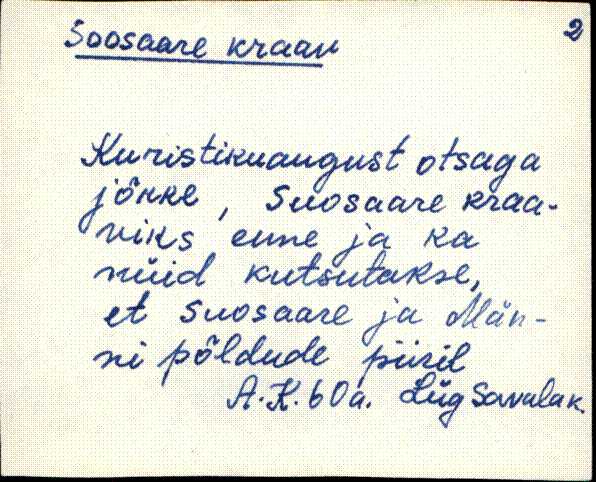 Soosaare kraav 2
Kuristikuaugust otsaga
jõkke, Suosaare kraa-
viks enne ja ka
nüid kutsutakse,
et Suosaare ja Män-
ni põldude piiril
A.K. 60a. Lüg Savalak.